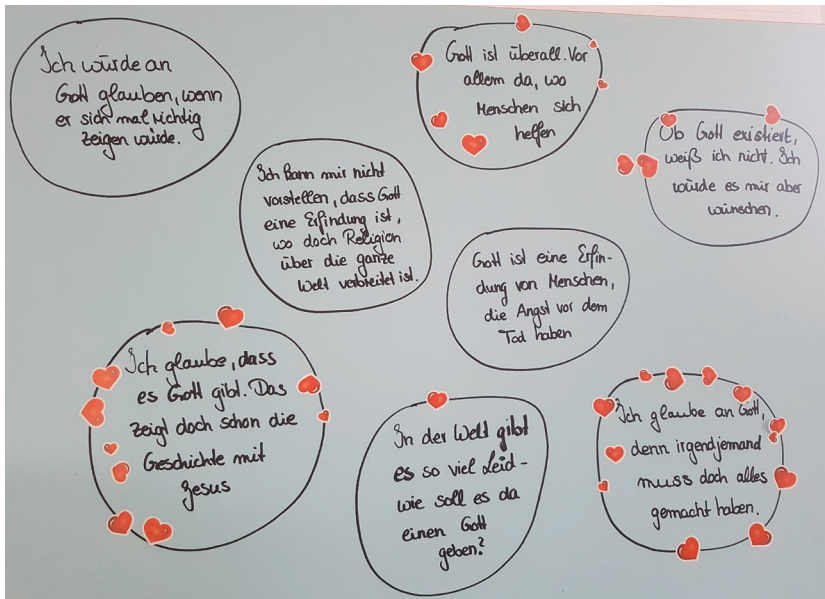 Ich würde an
Gott glauben, wenn
er sich mal richtig
zeigen würde.
Gott ist überall. Vor
allem da, wo
Menschen sich
helfen
Ob Gott existiert,
weiß ich nicht. Ich
würde es mir aber
wünschen.
Ich kann mir nicht
vorstellen, dass Gott
eine Erfindung ist,
wo doch Religion
über die ganze
Welt verbreitet ist.
Gott ist eine Erfin-
dung von Menschen,
die Angst vor dem
Tod haben
Ich glaube, dass
es Gott gibt. Das
zeigt doch schon die
Geschichte mit
Jesus
In der Welt gibt
es so viel Leid -
wie soll es da
einen Gott
geben?
Ich glaube an Gott,
denn irgendjemand
muss doch alles
gemacht haben.